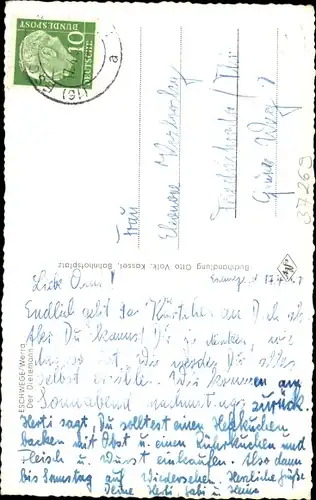 10
DEUTSCHE
BUNDESPOST
(16)
a
Frau
Eleonore
Friedrichroda / Thür
37269
Buchhandlung Otto Volk, Kassel, Bahnhofsplatz
ESCHWEGE/Werra
Der Dietemann
Liebe Omi!
Endlich geht das Kärtchen an Dich ab
Aber Du kannst Dir ja denken, wie
es ist. Wir werden Dir alles
selbst erzählen. Wir kommen am
Sonnabend nachmittags zurück.
Herti sagt, Du solltest einen Hefekuchen
backen mit Obst u. einen Rührkuchen und
Fleisch u. Wurst einkaufen. Also dann
bis Samstag auf Wiedersehen. Herzliche Grüße
Deine Herti u. Heine